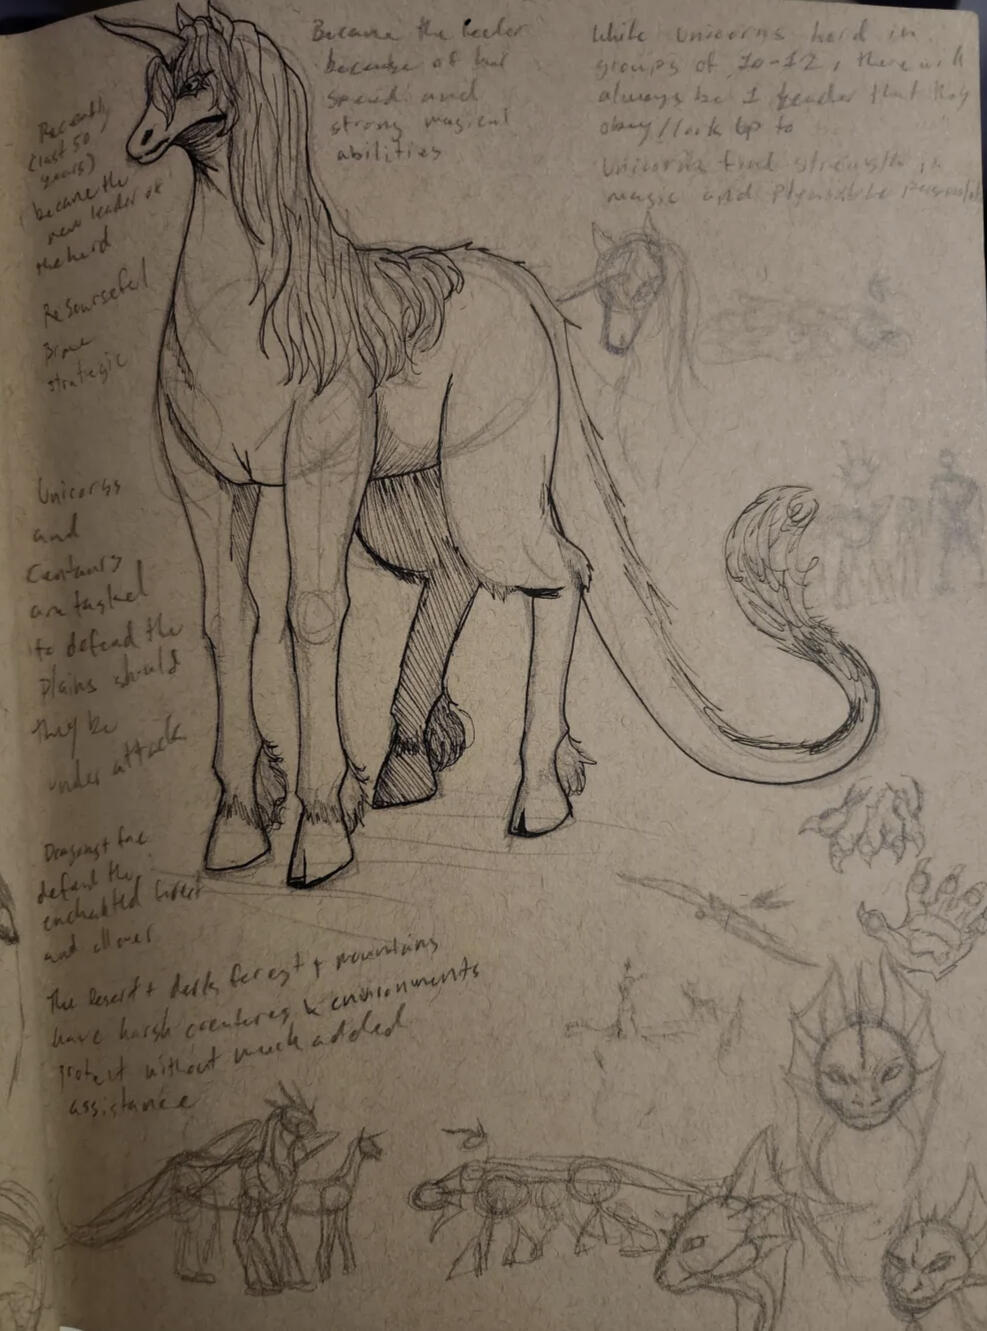 Became the leader
because of her
speed and
strong magical
abilities
While Unicorns herd in
groups of 10-12, there will
always be 1 leader that they
obey/look up to
Unicorns find strength in
magic and
Recently
(last 50
years)
became the
new leader of
the herd
Resourseful
Brave
strategic
Unicorss
and
Centaurs
are tasked
to defend the
plains should
they be
under attack
defend the
enchanted forest
and allover
The desert + dark forest + mountains
have harsh creatures & environments
protect without much added
assistance